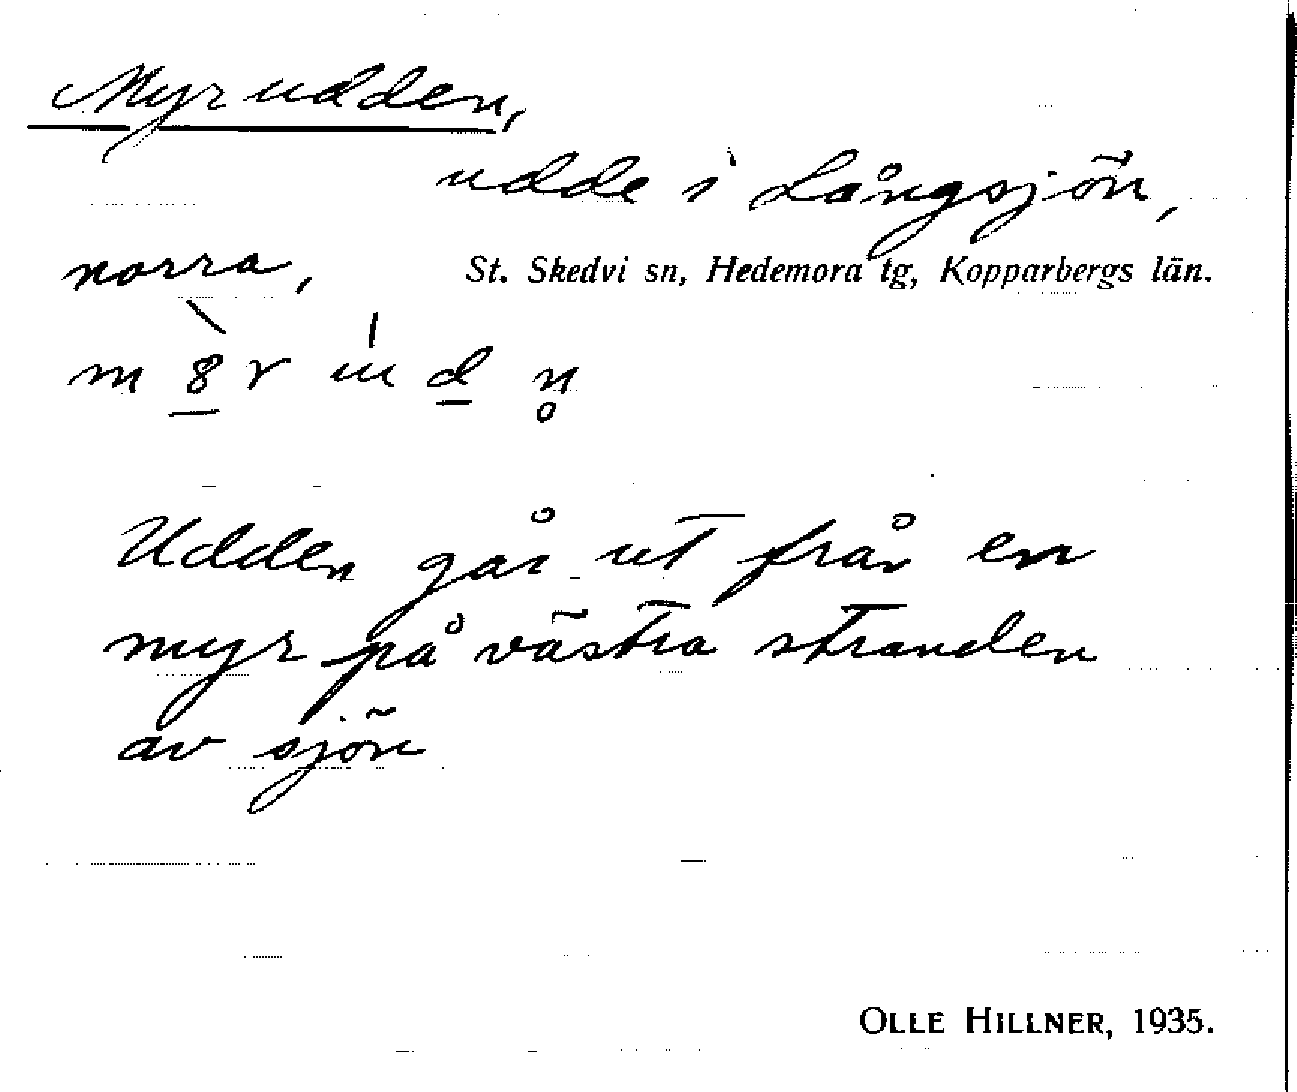 Myrudden,
udde i Långsjön,
norra,
St. Skedvi sn, Hedemora tg, Kopparbergs län.
m 8̲̀ r ɯ́ d̲ n̥
Udden går ut från en
myr på västra stranden
av sjön
OLLE HILLNER, 1935.